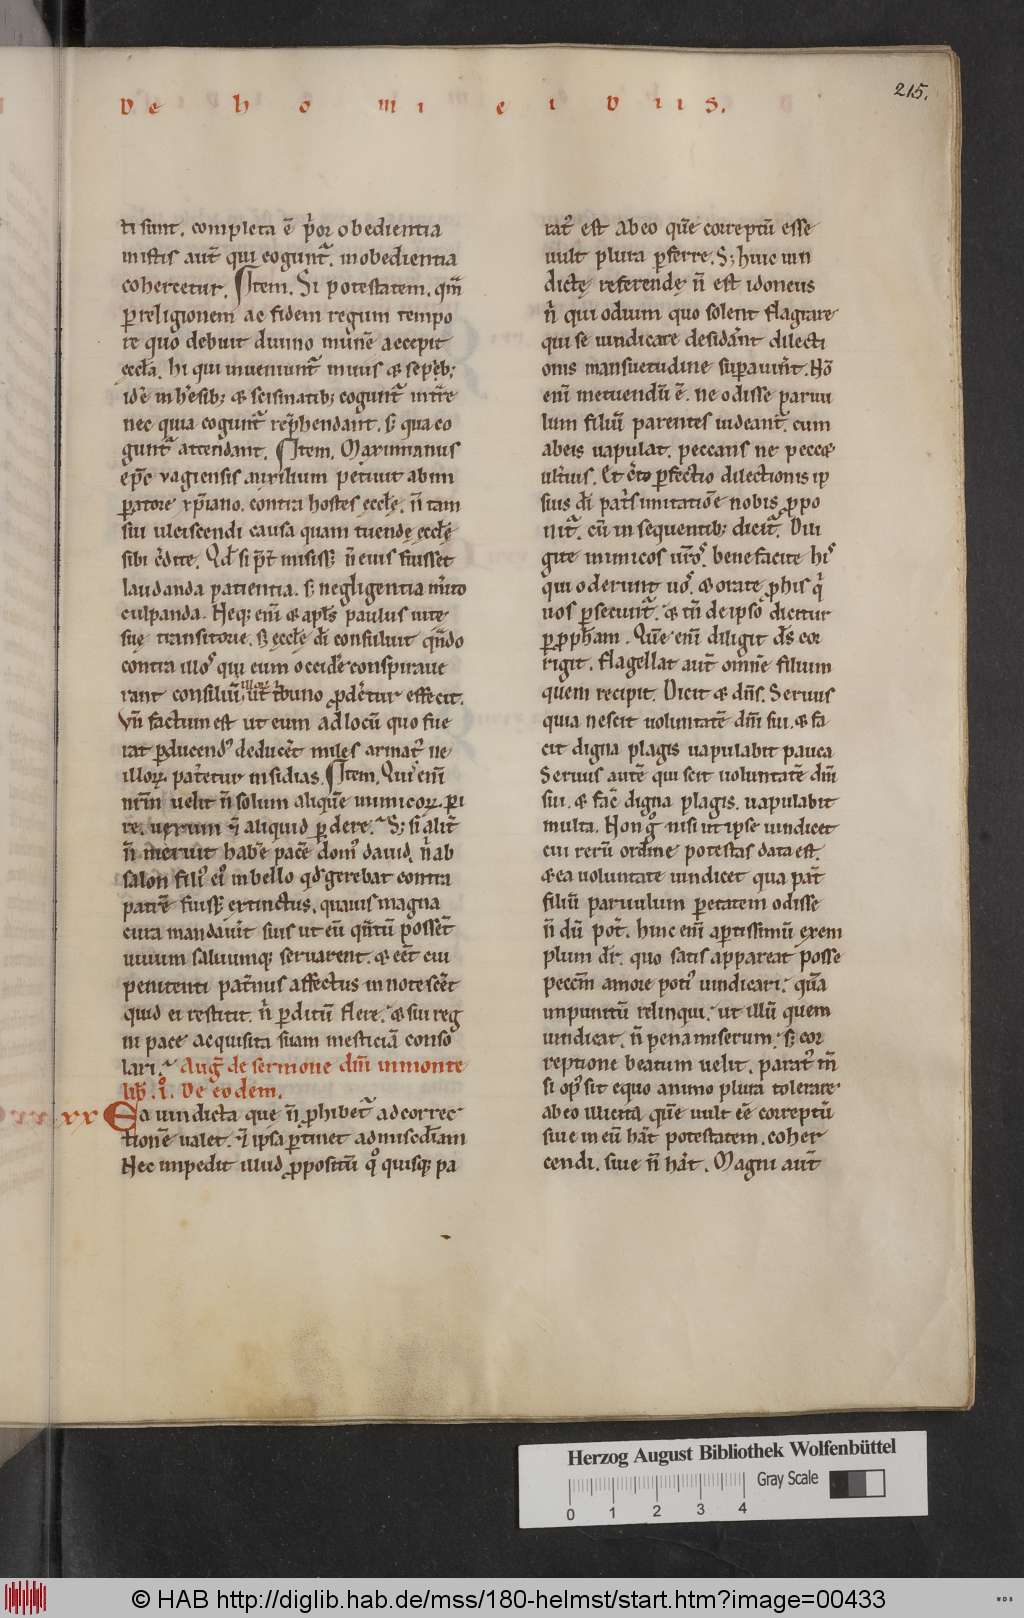 De homicidiis.
215.
ti sunt. completa ē p̄or obedientia
inistis aut̄ qui cogunt̄. inobedientia
cohercetur. Item. Si potestatem. qm̄
p religionem ac fidem regum tempo
re quo debuit diuino mun̄e accepit
eccl̄a. hi qui inueniunt̄ in uiis & sepib;
id ē in h̄esib; & scismatib; cogunt̄ intr̄e
nec quia cogunt̄ rep̄hendant. s; qua co
gunt̄ attendant. Item. Maximianus
ep̄c vagiensis auxilium petiuit ab im
peratore xp̄iano. contra hostes eccl̄e. n̄ tam
sui ulciscendi causa quam tuende eccl̄e
sibi c̄dite. Qd̄ si p̄t̄misiss; n̄ eius fuisset
laudanda patientia. s; negligentia m̄ito
culpanda. Neq; eni̅ & apl̄s paulus uite
sue transitorie. s; eccl̄e di̅ consuluit qn̄do
contra illoꝰ qui eum occid̄e conspiraue
rant consiliū ut t̄buno pd̄etur effecit.
Vn̄ factum est ut eum ad locū quo fue
rat pducendꝰ deducer̄t miles armatꝰ ne
illoꝝ. pat̄etur insidias. Item. Qui eni̅
nr̄m uelit n̄ solum aliquē inimicoꝝ. pi
re. uerum & aliquid pdere. S; si alit̄
n̄ meruit hab̄e pacē domꝰ dauid. n̄ ab
salon filiꝰ eiꝰ in bello qd̄ gerebat contra
patrē fuiss; extinctus. quauis magna
cura mandauit̄ suis ut eū qn̄tū possēt
uiuum saluumq; seruarent. & eēt cui
penitenti pat̄nus affectus innotescēt
quid ei restitit. n̄ pditū flere. & sui reg
ni pace acquisita suam mesticiā conso
lari. Aug̅ de sermone dn̄i in monte
lib̄. i̊. De eodem.
xx Ea uindicta que n̄ p̱hibet̄ ad correc
tionē ualet. & ipsa ptinet ad misc̄diam
Nec impedit illud ppositū qꝰ quisq; pa
ratꝰ est ab eo quē correptū esse
uult plura pferre. S; huic uin
dicte referende n̄ est idoneus
n̄ qui odium quo solent flagrare
qui se uindicare desidant̄ dilecti
onis mansuetudine supauit̄. Nō
eni̅ metuendū ē. ne odisse paruu
lum filiū parentes uideant̄. cum
ab eis uapulat. peccans ne peccet
ult̄ius. Et c̄te pfectio dilectionis ip
sius di̅ pat̄s imitatiōe nobis ppo
nit̄. cū in sequentib; dicit̄. Dili
gite inimicos ur̄oꝰ. benefacite hiꝰ
qui oderunt uoꝰ. & orate p his q̄
uos psecunt̄. & tn̄ de ipsō dicitur
p pp̄ham. Quē eni̅ diligit dꝰs cor
rigit. flagellat aut̄ omnē filium
quem recipit. Dicit & dn̄s. Seruus
quia nescit uoluntatē dn̄i sui. & fa
cit digna plagis uapulabit pauca
Seruus autē qui scit uoluntatē dn̄i
sui. & fac̄ digna plagis. uapulabit
multa. Non g̊ nisi ut ipse uindicet
cui rerū ordine potestas data est.
& ea uoluntate uindicet qua pat̄
filiū paruulum p etatem odisse
n̄ dū pot̄. hinc eni̅ aptissimū exem
plum dr̄. quo satis appareat posse
peccm̄ amore potiꝰ uindicari. quā
impunitū relinqui. ut illū quem
uindicat. n̄ pena miserum. s; cor
reptione beatum uelit. paratꝰ tn̄
si opꝰ sit equo animo plura tolerare
ab eo illicita quē uult eē correptū
siue in eū hāt potestatem. coher
cendi. siue n̄ hāt. Magni aut̄
Herzog August Bibliothek Wolfenbüttel
Gray Scale
0 1 2 3 4
© HAB http://diglib.hab.de/mss/180-helmst/start.htm?image=00433